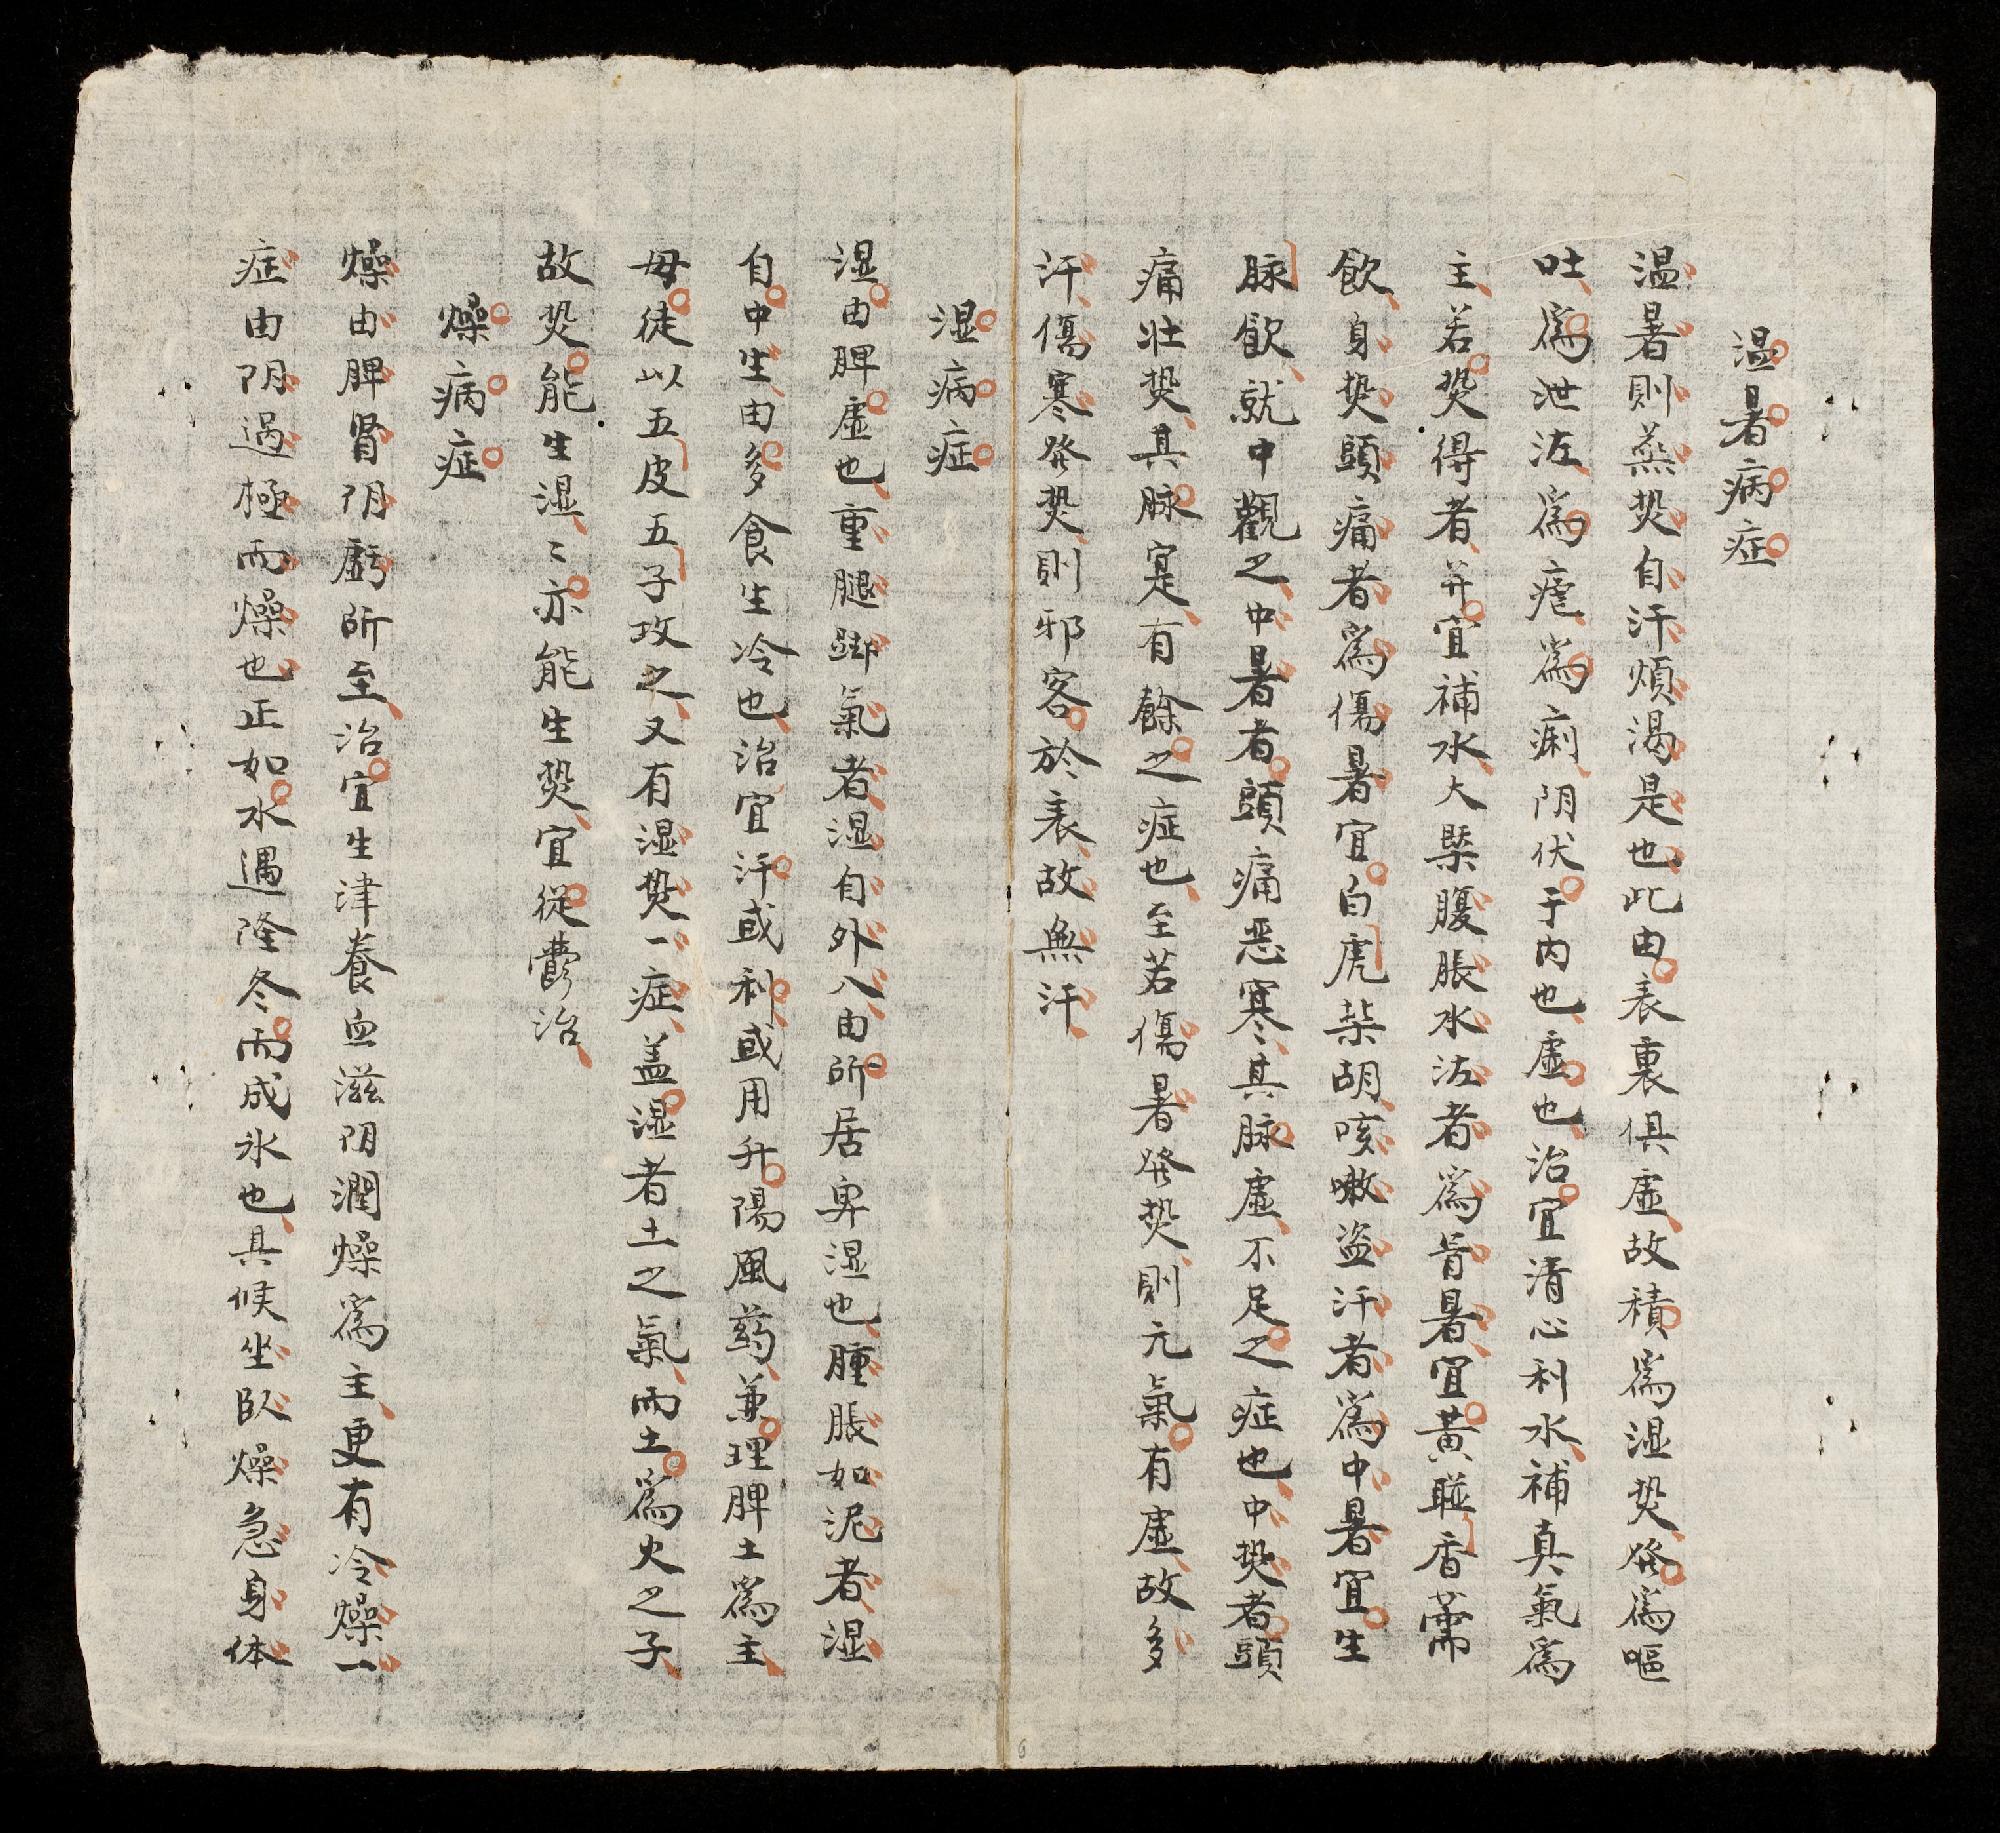 温暑病症
温暑則蒸热自汗煩渴是也此由表裏俱虛故積爲湿热発爲嘔
吐爲泄泻爲瘧爲痢阴伏于内也虛也治宜清心利水補真氣爲
主若热得者并宜補水大槩腹脹水泻者爲冐暑宜黄䏈香薷
飲身热頭痛者爲傷暑宜白虎柴胡咳嗽盗汗者爲中暑宜生
脉飲就中觀之中暑者頭痛恶寒其脉虛不足之症也中热者頭
痛壮热其脉寔有餘之症也至若傷暑発热則元氣有虛故多
汗傷寒発热則邪客於表故無汗
湿病症
湿由脾虛也重腿脚氣者湿自外入由所居卑湿也腫脹如泥者湿
自中生由多食生冷也治宜汗或利或用升陽風药兼理脾土爲主
母徒以五皮五子攻之又有湿热一症盖湿者土之氣而土爲火之子
故热能生湿〻亦能生热宜從欝治
燥病症
燥由脾腎阴虧所至治宜生津養血滋阴潤燥爲主更有冷燥一
症由阴過極而燥也正如水遇隆冬而成氷也具候坐臥燥急身体